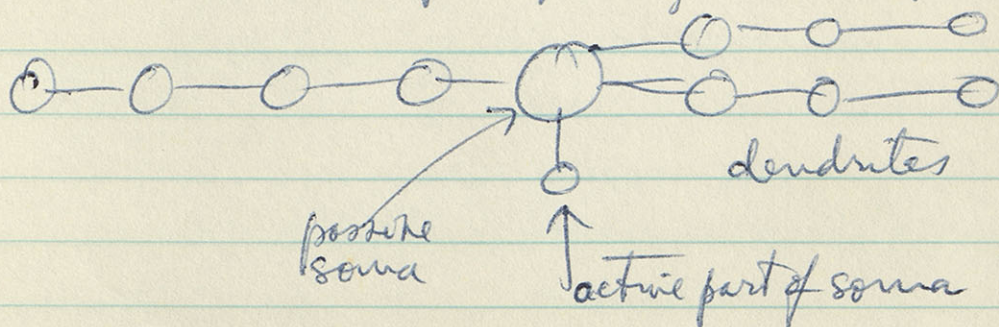 dendrites
passive
soma
active part of soma